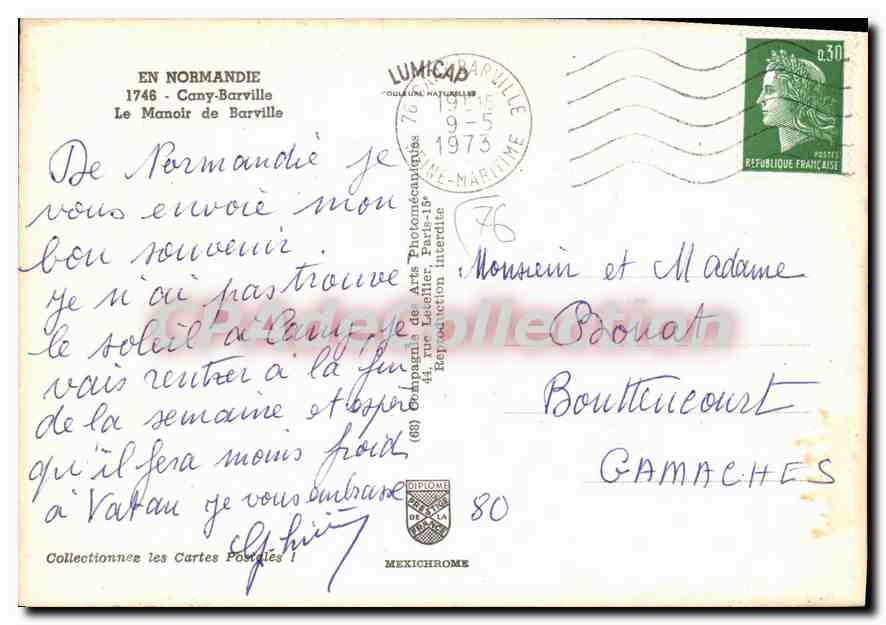 EN NORMANDIE
1746 - Cany-Barville
Le Manoir de Barville
De Normandie je
vous envoie mon
bon souvenir.
Je n'ai pas trouvé
le soleil à Cany, je
vais rentrer à la fin
de la semaine et espère
qu'il fera moins froid
à Vatan je vous embrasse
Collectionnez les Cartes Postales !
LUMICAP
COULEURS NATURELLES
76 CANY-BARVILLE
19H15
9-5
1973
SEINE-MARITIME
(68) Compagnie des Arts Photomécaniques
44, rue Letellier, Paris-15e
Reproduction interdite
DIPLOME
PRESTIGE
DE LA
FRANCE
MEXICHROME
0,30
POSTES
REPUBLIQUE FRANÇAISE
76
Monsieur et Madame
Bonat
Bouttencourt
GAMACHES
80
CPAdeCollection